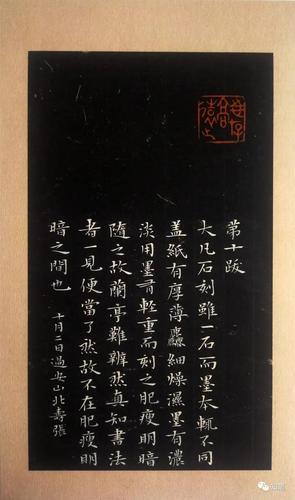 第十跋
大凡石刻雖一石而墨本輒不同
盖紙有厚薄麤細燥濕墨有濃
淡用墨有軽重而刻之肥瘦明暗
随之故蘭亭難辨然真知書法
者一見便當了然故不在肥瘦明
暗之間也 十月二日過安山北壽張